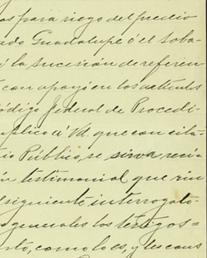 as para riego del predio
ado Guadalupe ó el Soba-
i la sucesión de referen
t con apoyo en los artículos
código federal de Procedi-
uplico á Vd. que con cita-
io Público, se sirva, reci-
ón testimonial que rin
siguiente interrogato-
s generales los testigos-
rto, como lo es, y les cons